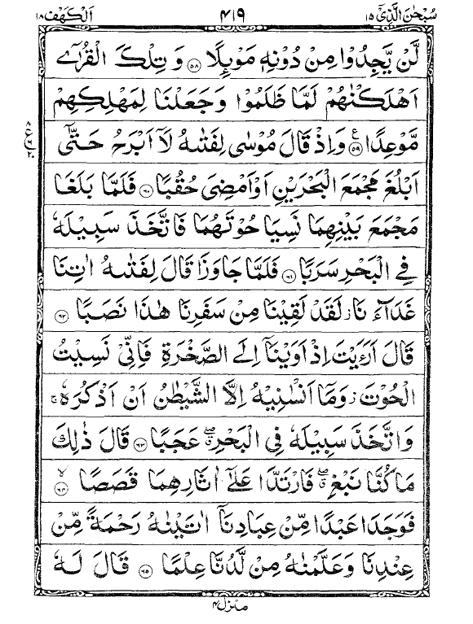 سُبْحٰنَ الَّذِیْٓ ۱۵ ۴۱۹ اَلْكَهْف ۱۸
لَّنْ یَّجِدُوْا مِنْ دُوْنِهٖ مَوْىِٕلًا ۝۵۸ وَ تِلْكَ الْقُرٰۤی
اَهْلَكْنٰهُمْ لَمَّا ظَلَمُوْا وَ جَعَلْنَا لِمَهْلِكِهِمْ
مَّوْعِدًا ۝۵۹ وَ اِذْ قَالَ مُوْسٰی لِفَتٰىهُ لَاۤ اَبْرَحُ حَتّٰۤی
اَبْلُغَ مَجْمَعَ الْبَحْرَیْنِ اَوْ اَمْضِیَ حُقُبًا ۝۶۰ فَلَمَّا بَلَغَا
مَجْمَعَ بَیْنِهِمَا نَسِیَا حُوْتَهُمَا فَاتَّخَذَ سَبِیْلَهٗ
فِی الْبَحْرِ سَرَبًا ۝۶۱ فَلَمَّا جَاوَزَا قَالَ لِفَتٰىهُ اٰتِنَا
غَدَآءَ نَا ز لَقَدْ لَقِیْنَا مِنْ سَفَرِنَا هٰذَا نَصَبًا ۝۶۲
قَالَ اَرَءَیْتَ اِذْ اَوَیْنَاۤ اِلَی الصَّخْرَةِ فَاِنِّیْ نَسِیْتُ
الْحُوْتَ ز وَ مَاۤ اَنْسٰىنِیْهُ اِلَّا الشَّیْطٰنُ اَنْ اَذْكُرَهٗ ۚ
وَ اتَّخَذَ سَبِیْلَهٗ فِی الْبَحْرِ ۖ عَجَبًا ۝۶۳ قَالَ ذٰلِكَ
مَا كُنَّا نَبْغِ ۖ فَارْتَدَّا عَلٰۤی اٰثَارِهِمَا قَصَصًا ۝۶۴
فَوَجَدَا عَبْدًا مِّنْ عِبَادِنَاۤ اٰتَیْنٰهُ رَحْمَةً مِّنْ
عِنْدِنَا وَ عَلَّمْنٰهُ مِنْ لَّدُنَّا عِلْمًا ۝۶۵ قَالَ لَهٗ
منزل ۴